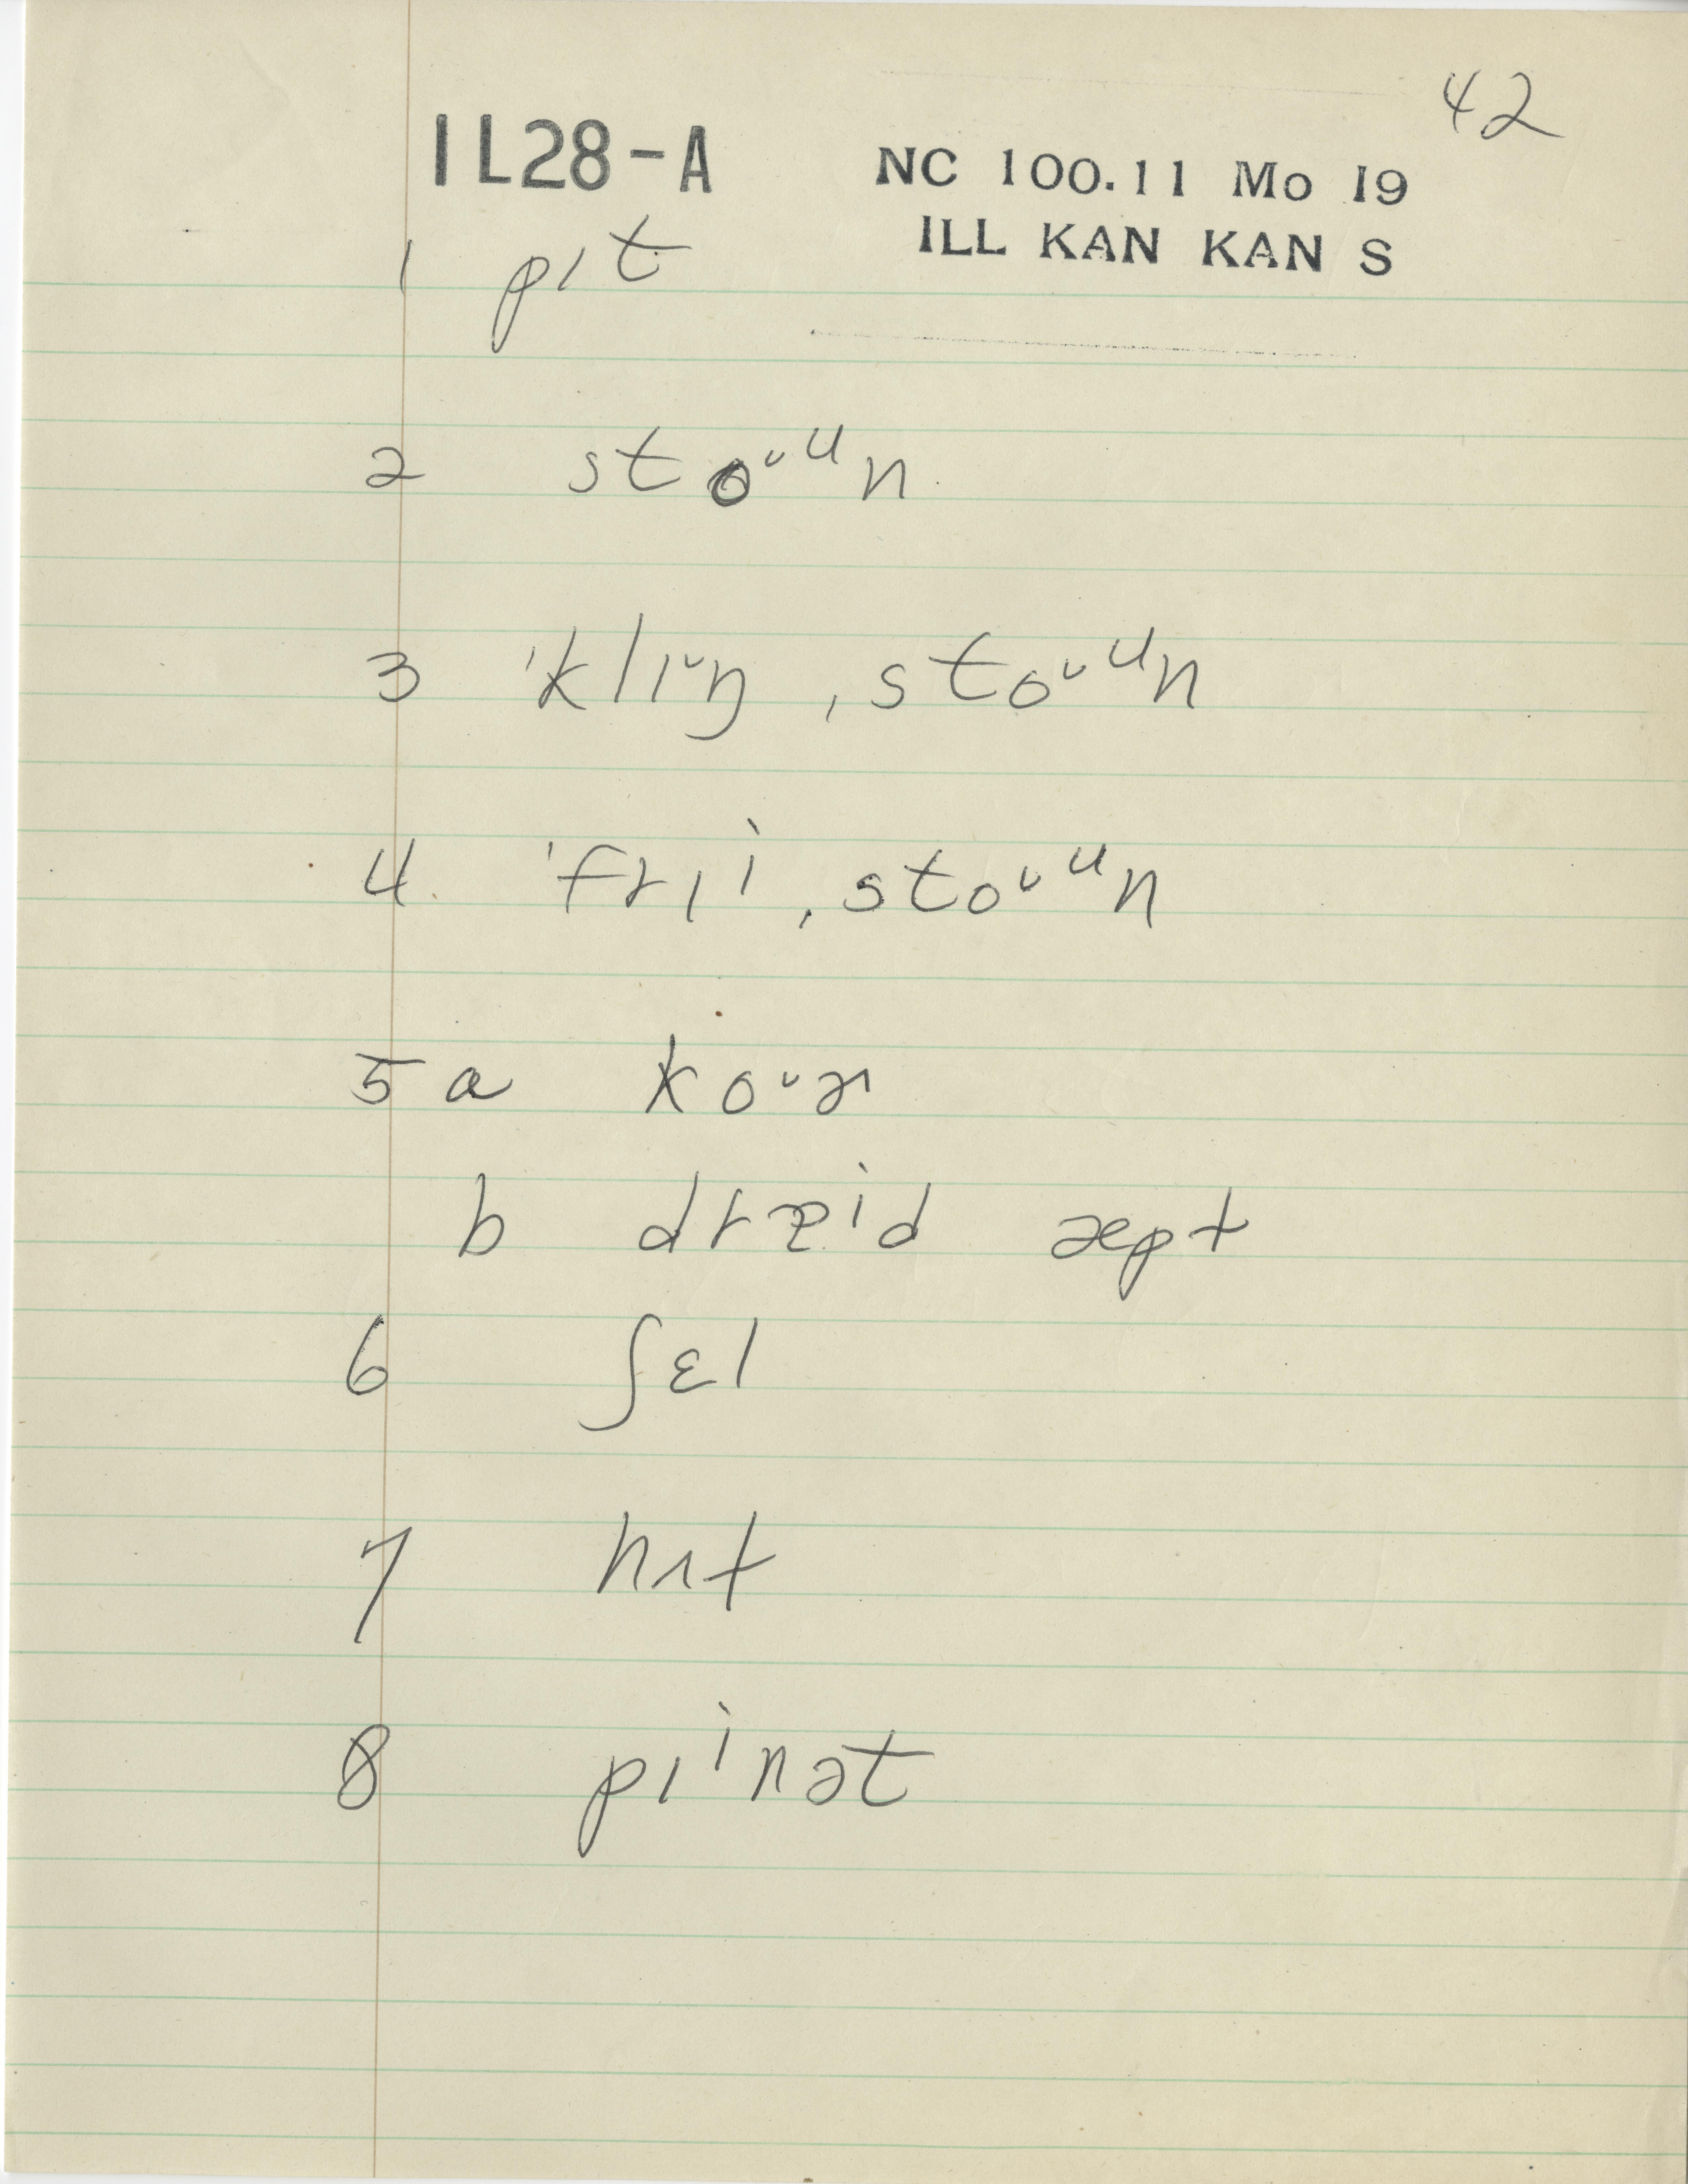 42
IL28-A
NC 100.11 Mo I9
ILL KAN KAN S
1 pɪt
2 stoᵛᵘn
3 ˈklɪᵛŋ ˌstoᵛᵘn
4. ˈfrɪⁱ ˌstoᵛᵘn
5 a koᵛɚ
b dɹɐⁱd æpt
6 ʃɛl
7 hɪt
8 pɪⁱnət